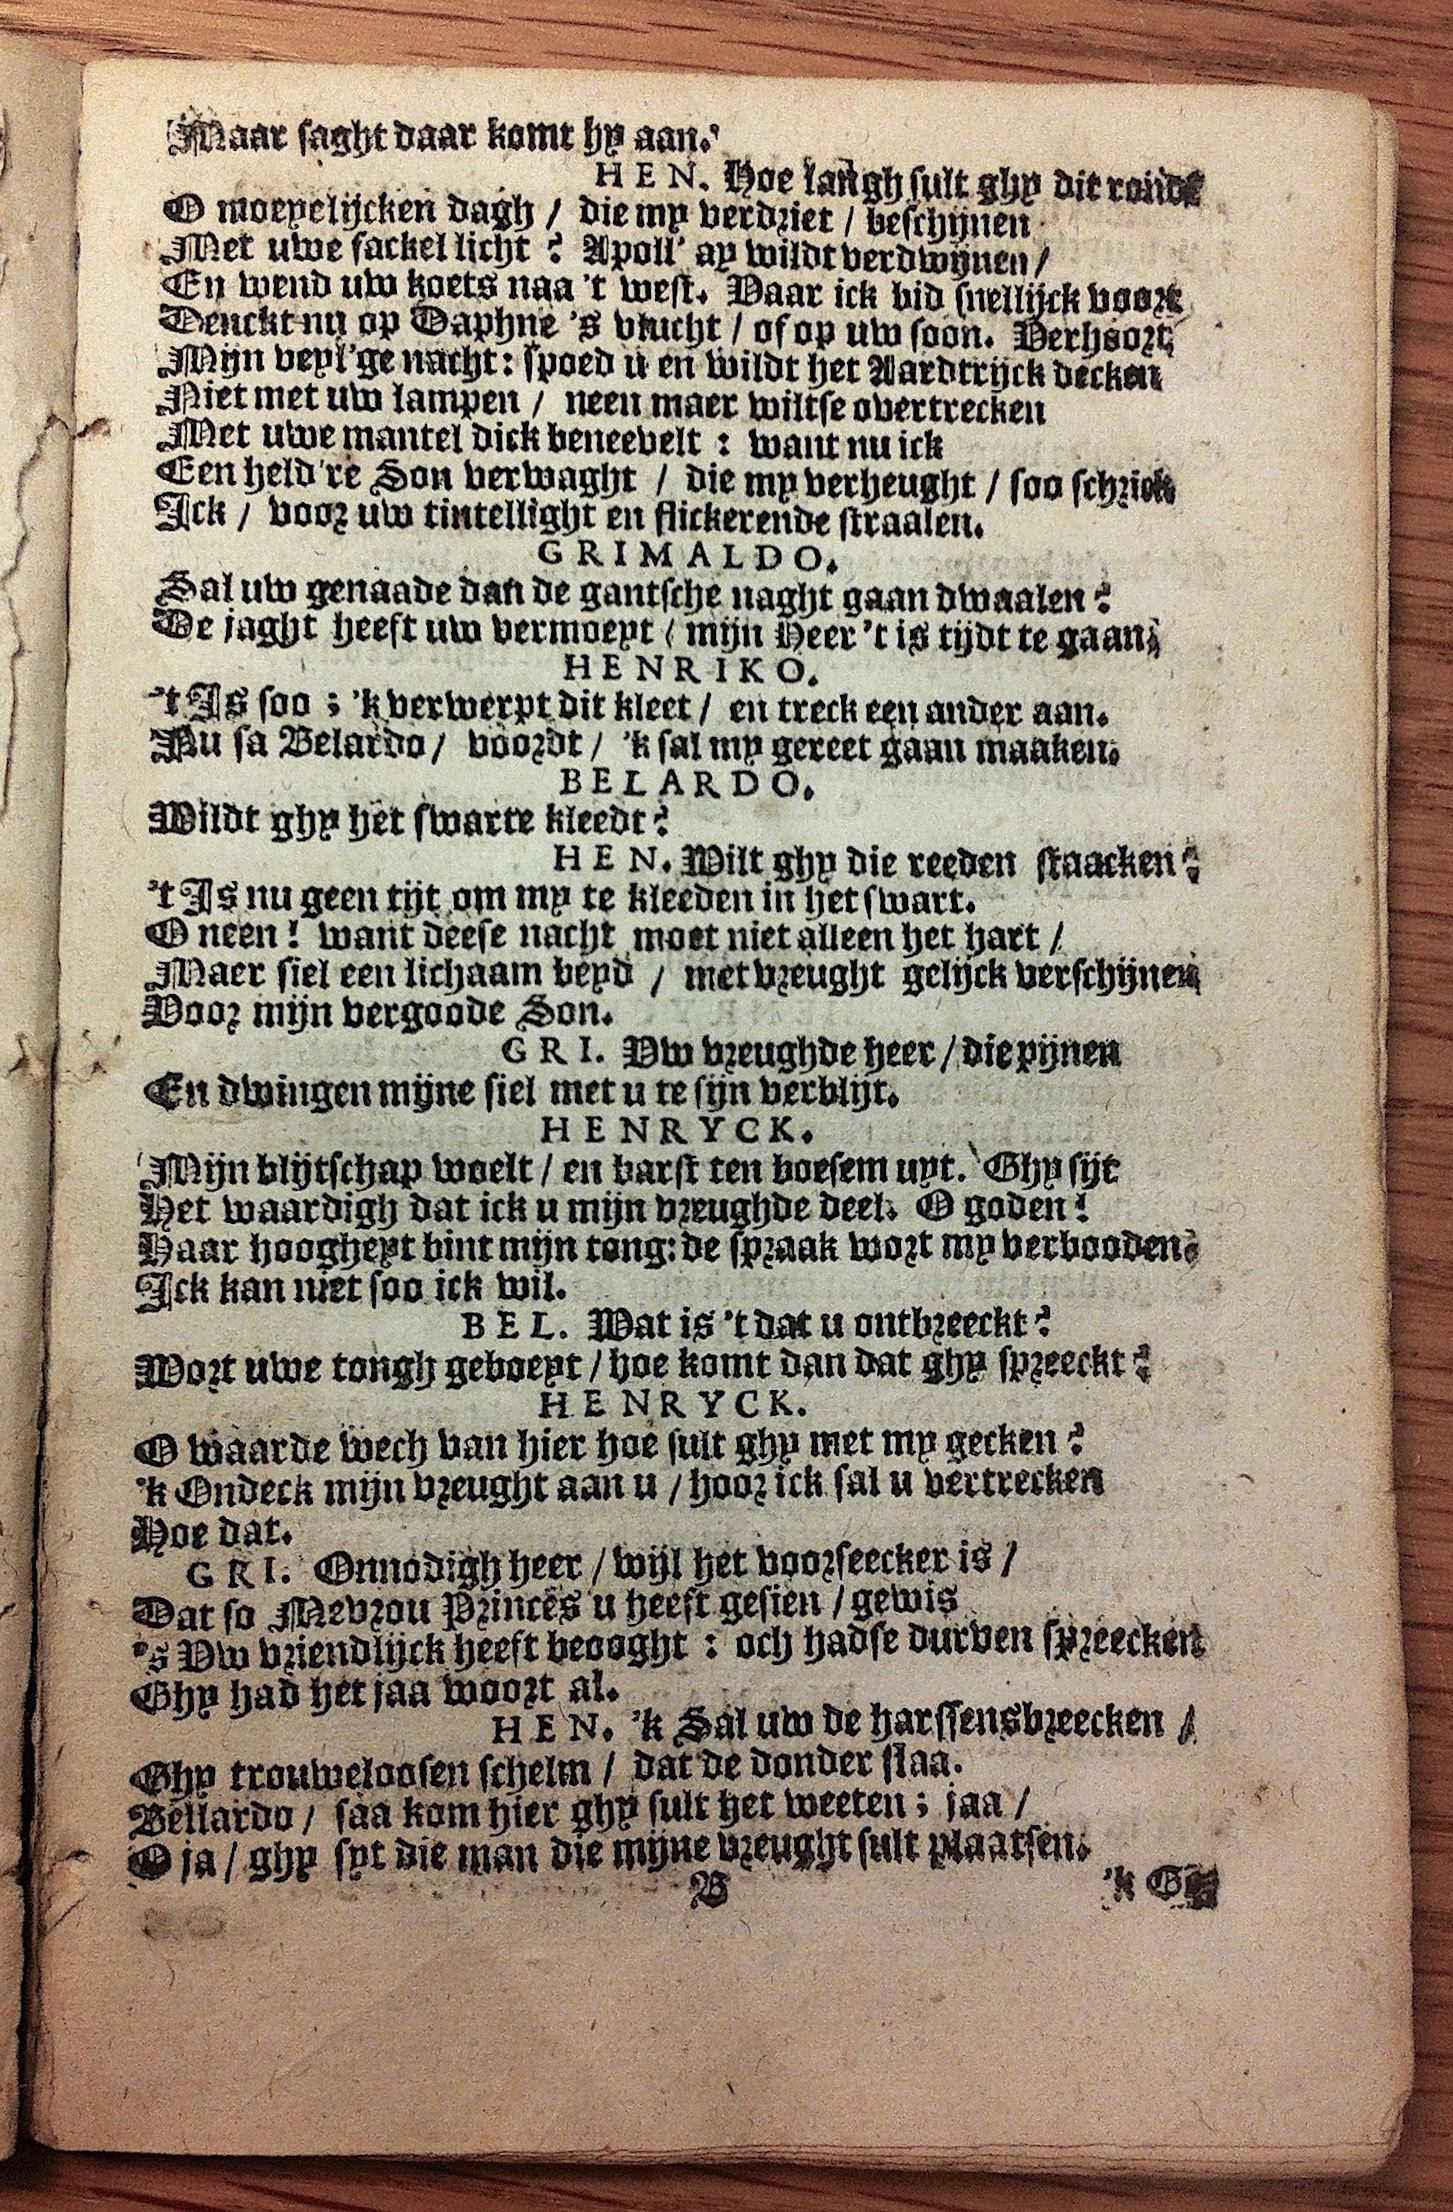 Maar saght daar komt hy aan.
HEN. Hoe langh sult ghy dit ronde
O moeyelijcken dagh / die my verdriet / beschijnen
Met uwe fackel licht? Apoll' ay wildt verdwijnen /
En wend uw koets naa 't west. Daar ick bid snellijck voort
Denckt nu op Daphne 's vlucht / of op uw soon. Verhoort,
Mijn veyl'ge nacht: spoed u en wildt het Aardtrijck decken
Niet met uw lampen / neen maer wiltse overtrecken
Met uwe mantel dick beneevelt : want nu ick
Een held're Son verwaght / die my verheught / soo schrick
Ick / voor uw tintellight en flickerende straalen.
GRIMALDO.
Sal uw genaade dan de gantsche naght gaan dwaalen?
De jaght heeft uw vermoeyt / mijn Heer 't is tijdt te gaan,
HENRIKO.
't Is soo ; 'k verwerpt dit kleet / en treck een ander aan.
Nu sa Belardo / voordt / 'k sal my gereet gaan maaken.
BELARDO.
Wildt ghy het swarte kleedt?
HEN. Wilt ghy die reeden staacken?
't Is nu geen tijt om my te kleeden in het swart.
O neen! want deese nacht moet niet alleen het hart /
Maer siel een lichaam beyd / met vreught gelijck verschijnen
Voor mijn vergoode Son.
GRI. Vw vreughde heer / die pijnen
En dwingen mijne siel met u te sijn verblijt.
HENRYCK.
Mijn blijtschap woelt / en barst ten boesem uyt. Ghy sijt
Het waardigh dat ick u mijn vreughde deel. O goden!
Haar hoogheyt bint mijn tong: de spraak wort my verbooden.
Ick kan niet soo ick wil.
BEL. Wat is 't dat u ontbreeckt?
Wort uwe tongh geboeyt / hoe komt dan dat ghy spreeckt?
HENRYCK.
O waarde wech van hier hoe sult ghy met my gecken?
'k Ondeck mijn vreught aan u / hoor ick sal u vertrecken
Hoe dat.
GRI. Onnodigh heer / wijl het voorseecker is /
Dat so Mevrou Princes u heeft gesien / gewis
's Vw vriendlijck heeft beooght : och hadse durven spreecken
Ghy had het jaa woort al.
HEN. 'k Sal uw de harssens breecken /
Ghy trouweloosen schelm / dat de donder slaa.
Bellardo / saa kom hier ghy sult het weeten ; jaa /
O ja / ghy syt die man die mijne vreught sult plaatsen.
B
'k